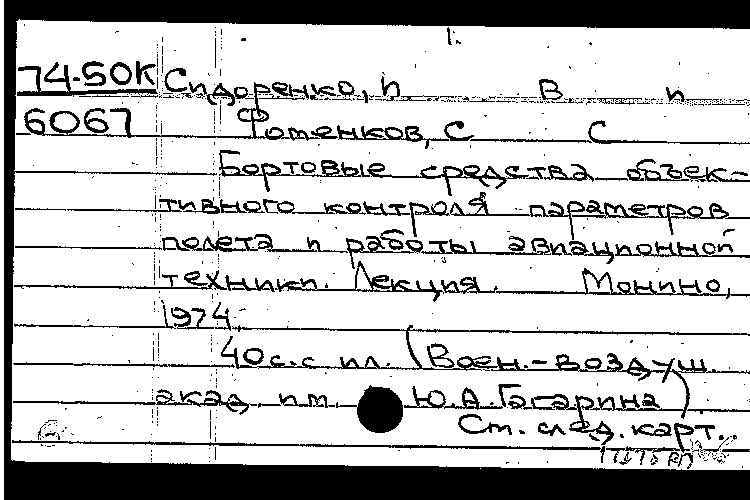 74-50К Сидоренко, П. В. и
6067 Фоменков, С. С.
Бортовые средства объек-
тивного контроля параметров
полета и работы авиационной
техники. Лекция. Монино,
1974.
40с. с ил. (Воен.-воздуш.
акад. им. Ю.А.Гагарина)
См. след. карт.